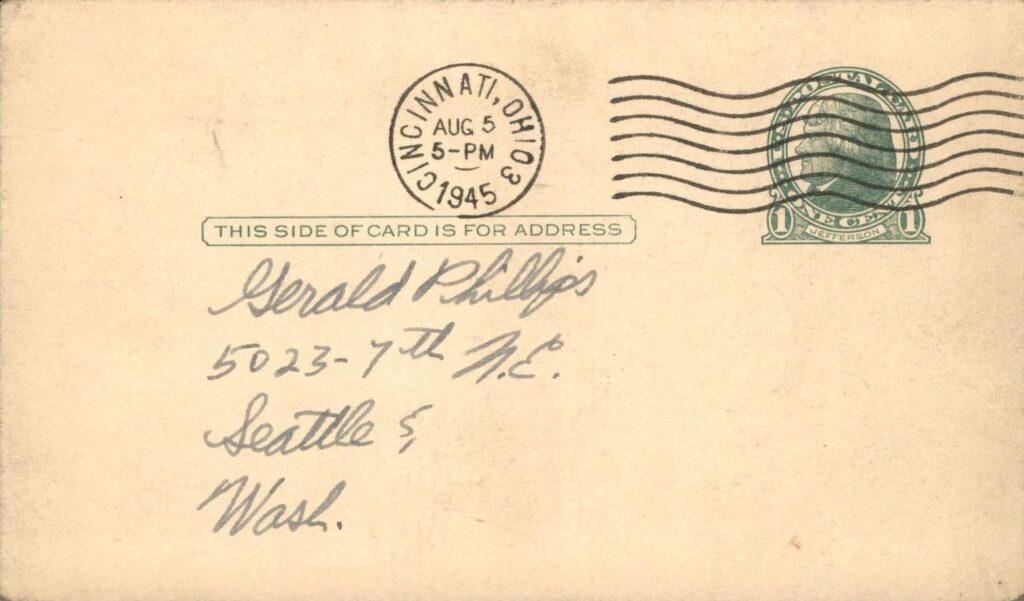 CINCINNATI, OHIO 3
AUG 5
5-PM
1945
POSTAL CARD
ONE CENT
1 1
JEFFERSON
THIS SIDE OF CARD IS FOR ADDRESS
Gerald Phillips
5023-7th N.E.
Seattle 5,
Wash.